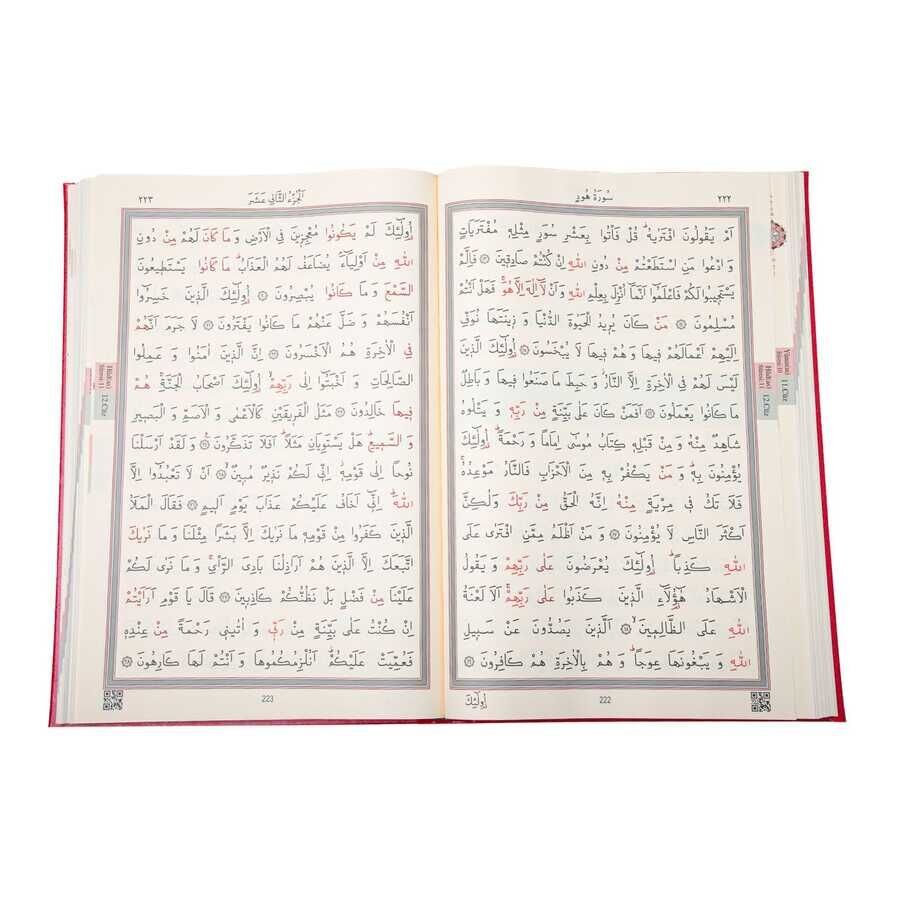 ٢٢٢
سُورَةُ هُودٍ
اَمْ يَقُولُونَ افْتَرٰيهُۜ قُلْ فَأْتُوا بِعَشْرِ سُوَرٍ مِثْلِه۪ مُفْتَرَيَاتٍ
وَادْعُوا مَنِ اسْتَطَعْتُمْ مِنْ دُونِ اللّٰهِ اِنْ كُنْتُمْ صَادِق۪ينَ ﴿١٣﴾ فَاِلَّمْ
يَسْتَج۪يبُوا لَكُمْ فَاعْلَمُٓوا اَنَّمَٓا اُنْزِلَ بِعِلْمِ اللّٰهِ وَاَنْ لَٓا اِلٰهَ اِلَّا هُوَۚ فَهَلْ اَنْتُمْ
مُسْلِمُونَ ﴿١٤﴾ مَنْ كَانَ يُر۪يدُ الْحَيٰوةَ الدُّنْيَا وَز۪ينَتَهَا نُوَفِّ
اِلَيْهِمْ اَعْمَالَهُمْ ف۪يهَا وَهُمْ ف۪يهَا لَا يُبْخَسُونَ ﴿١٥﴾ اُو۬لٰٓئِكَ الَّذ۪ينَ
لَيْسَ لَهُمْ فِي الْاٰخِرَةِ اِلَّا النَّارُۘ وَحَبِطَ مَا صَنَعُوا ف۪يهَا وَبَاطِلٌ
مَا كَانُوا يَعْمَلُونَ ﴿١٦﴾ اَفَمَنْ كَانَ عَلٰى بَيِّنَةٍ مِنْ رَبِّه۪ وَيَتْلُوهُ
شَاهِدٌ مِنْهُ وَمِنْ قَبْلِه۪ كِتَابُ مُوسٰٓى اِمَامًا وَرَحْمَةًۜ اُو۬لٰٓئِكَ
يُؤْمِنُونَ بِه۪ۜ وَمَنْ يَكْفُرْ بِه۪ مِنَ الْاَحْزَابِ فَالنَّارُ مَوْعِدُهُۚ
فَلَا تَكُ ف۪ي مِرْيَةٍ مِنْهُ اِنَّهُ الْحَقُّ مِنْ رَبِّكَ وَلٰكِنَّ
اَكْثَرَ النَّاسِ لَا يُؤْمِنُونَ ﴿١٧﴾ وَمَنْ اَظْلَمُ مِمَّنِ افْتَرٰى عَلَى
اللّٰهِ كَذِبًاۜ اُو۬لٰٓئِكَ يُعْرَضُونَ عَلٰى رَبِّهِمْ وَيَقُولُ
الْاَشْهَادُ هٰٓؤُ۬لَٓاءِ الَّذ۪ينَ كَذَبُوا عَلٰى رَبِّهِمْۚ اَلَا لَعْنَةُ
اللّٰهِ عَلَى الظَّالِم۪ينَۙ ﴿١٨﴾ اَلَّذ۪ينَ يَصُدُّونَ عَنْ سَب۪يلِ
اللّٰهِ وَيَبْغُونَهَا عِوَجًاۜ وَهُمْ بِالْاٰخِرَةِ هُمْ كَافِرُونَ ﴿١٩﴾
222
اُو۬لٰٓئِكَ
اَلْجُزْءُ الثَّانِي عَشَرَ
٢٢٣
اُو۬لٰٓئِكَ لَمْ يَكُونُوا مُعْجِز۪ينَ فِي الْاَرْضِ وَمَا كَانَ لَهُمْ مِنْ دُونِ
اللّٰهِ مِنْ اَوْلِيَٓاءَۢ يُضَاعَفُ لَهُمُ الْعَذَابُۜ مَا كَانُوا يَسْتَط۪يعُونَ
السَّمْعَ وَمَا كَانُوا يُبْصِرُونَ ﴿٢٠﴾ اُو۬لٰٓئِكَ الَّذ۪ينَ خَسِرُٓوا
اَنْفُسَهُمْ وَضَلَّ عَنْهُمْ مَا كَانُوا يَفْتَرُونَ ﴿٢١﴾ لَا جَرَمَ اَنَّهُمْ
فِي الْاٰخِرَةِ هُمُ الْاَخْسَرُونَ ﴿٢٢﴾ اِنَّ الَّذ۪ينَ اٰمَنُوا وَعَمِلُوا
الصَّالِحَاتِ وَاَخْبَتُٓوا اِلٰى رَبِّهِمْۙ اُو۬لٰٓئِكَ اَصْحَابُ الْجَنَّةِۚ هُمْ
ف۪يهَا خَالِدُونَ ﴿٢٣﴾ مَثَلُ الْفَر۪يقَيْنِ كَالْاَعْمٰى وَالْاَصَمِّ وَالْبَص۪يرِ
وَالسَّم۪يعِۜ هَلْ يَسْتَوِيَانِ مَثَلًاۜ اَفَلَا تَذَكَّرُونَ ﴿٢٤﴾ وَلَقَدْ اَرْسَلْنَا
نُوحًا اِلٰى قَوْمِه۪ۘ اِنّ۪ي لَكُمْ نَذ۪يرٌ مُب۪ينٌۙ ﴿٢٥﴾ اَنْ لَا تَعْبُدُٓوا اِلَّا
اللّٰهَۜ اِنّ۪ٓي اَخَافُ عَلَيْكُمْ عَذَابَ يَوْمٍ اَل۪يمٍ ﴿٢٦﴾ فَقَالَ الْمَلَأُ
الَّذ۪ينَ كَفَرُوا مِنْ قَوْمِه۪ مَا نَرٰيكَ اِلَّا بَشَرًا مِثْلَنَا وَمَا نَرٰيكَ
اتَّبَعَكَ اِلَّا الَّذ۪ينَ هُمْ اَرَاذِلُنَا بَادِيَ الرَّأْيِۚ وَمَا نَرٰى لَكُمْ
عَلَيْنَا مِنْ فَضْلٍ بَلْ نَظُنُّكُمْ كَاذِب۪ينَ ﴿٢٧﴾ قَالَ يَا قَوْمِ اَرَاَيْتُمْ
اِنْ كُنْتُ عَلٰى بَيِّنَةٍ مِنْ رَبّ۪ي وَاٰتٰين۪ي رَحْمَةً مِنْ عِنْدِه۪
فَعُمِّيَتْ عَلَيْكُمْۜ اَنُلْزِمُكُمُوهَا وَاَنْتُمْ لَهَا كَارِهُونَ ﴿٢٨﴾
223
Hûd(as)
Sûresi 11
12.Cüz
Hûd(as)
Sûresi 11
12.Cüz
Yûnus(as)
Sûresi 10
11.Cüz